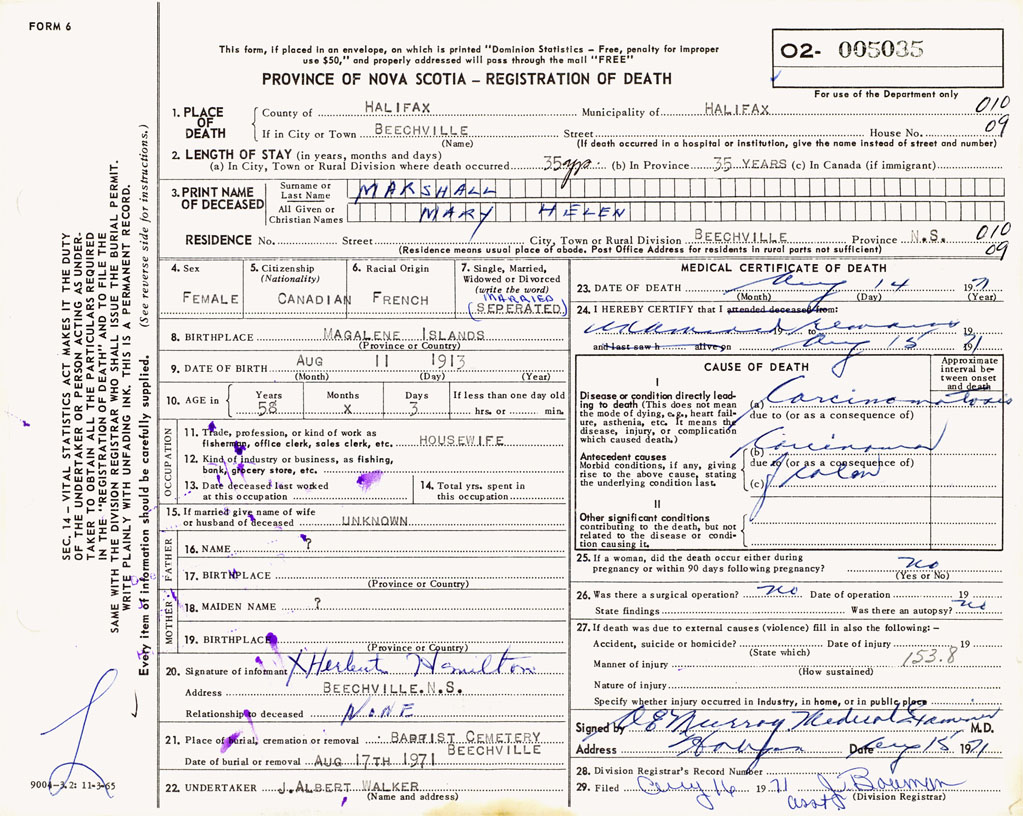 FORM 6
This form, if placed in an envelope, on which is printed "Dominion Statistics – Free, penalty for improper
use $50," and properly addressed will pass through the mail "FREE"
PROVINCE OF NOVA SCOTIA – REGISTRATION OF DEATH
02- 005035
For use of the Department only
1. PLACE OF DEATH County of HALIFAX Municipality of HALIFAX 010
If in City or Town BEECHVILLE Street House No. 09
(Name) (If death occurred in a hospital or institution, give the name instead of street and number)
2. LENGTH OF STAY (in years, months and days)
(a) In City, Town or Rural Division where death occurred 35 yrs. (b) In Province 35 YEARS (c) In Canada (if immigrant)
3. PRINT NAME OF DECEASED Surname or Last Name MARSHALL
All Given or Christian Names MARY HELEN
RESIDENCE No. Street City, Town or Rural Division BEECHVILLE Province N.S. 010
(Residence means usual place of abode. Post Office Address for residents in rural parts not sufficient) 09
4. Sex FEMALE
5. Citizenship (Nationality) CANADIAN
6. Racial Origin FRENCH
7. Single, Married, Widowed or Divorced (write the word) MARRIED (SEPERATED)
8. BIRTHPLACE MAGALENE ISLANDS
(Province or Country)
9. DATE OF BIRTH AUG 11 1913
(Month) (Day) (Year)
10. AGE in Years 58 Months X Days 3 If less than one day old hrs. or min.
OCCUPATION
11. Trade, profession, or kind of work as
fisherman, office clerk, sales clerk, etc. HOUSEWIFE
12. Kind of industry or business, as fishing,
bank, grocery store, etc.
13. Date deceased last worked
at this occupation
14. Total yrs. spent in
this occupation
15. If married give name of wife
or husband of deceased UNKNOWN
FATHER
16. NAME ?
17. BIRTHPLACE
(Province or Country)
MOTHER
18. MAIDEN NAME ?
19. BIRTHPLACE
(Province or Country)
20. Signature of informant X Herbert Hamilton
Address BEECHVILLE. N.S.
Relationship to deceased NONE
21. Place of burial, cremation or removal BAPTIST CEMETERY
BEECHVILLE
Date of burial or removal AUG 17TH 1971
22. UNDERTAKER J. ALBERT WALKER
(Name and address)
MEDICAL CERTIFICATE OF DEATH
23. DATE OF DEATH Aug 14 1971
(Month) (Day) (Year)
24. I HEREBY CERTIFY that I attended deceased from:
19 to 19
and last saw h alive on Aug 15 1971
CAUSE OF DEATH
Approximate interval between onset and death
I
Disease or condition directly leading to death (This does not mean
the mode of dying, e.g., heart failure, asthenia, etc. It means the
disease, injury, or complication
which caused death.)
(a) Carcinomatosis
due to (or as a consequence of)
Antecedent causes
Morbid conditions, if any, giving
rise to the above cause, stating
the underlying condition last.
(b) Carcinoma
due to (or as a consequence of)
(c) of colon
II
Other significant conditions
contributing to the death, but not
related to the disease or condition causing it.
25. If a woman, did the death occur either during
pregnancy or within 90 days following pregnancy? no
(Yes or No)
26. Was there a surgical operation? no Date of operation 19
State findings Was there an autopsy? no
27. If death was due to external causes (violence) fill in also the following: –
Accident, suicide or homicide? Date of injury 19
(State which) 153.8
Manner of injury
(How sustained)
Nature of injury
Specify whether injury occurred in industry, in home, or in public place
Signed by D E Murray Medical Examiner M.D.
Address Halifax Date Aug 15 1971
28. Division Registrar's Record Number
29. Filed Aug 16 1971 J. Bauman
asst (Division Registrar)
SEC. 14 – VITAL STATISTICS ACT MAKES IT THE DUTY
OF THE UNDERTAKER OR PERSON ACTING AS UNDERTAKER TO OBTAIN ALL THE PARTICULARS REQUIRED
IN THE "REGISTRATION OF DEATH" AND TO FILE THE
SAME WITH THE DIVISION REGISTRAR WHO SHALL ISSUE THE BURIAL PERMIT.
WRITE PLAINLY WITH UNFADING INK. THIS IS A PERMANENT RECORD.
Every item of information should be carefully supplied. (See reverse side for instructions.)
9004-3.2: 11-3-65